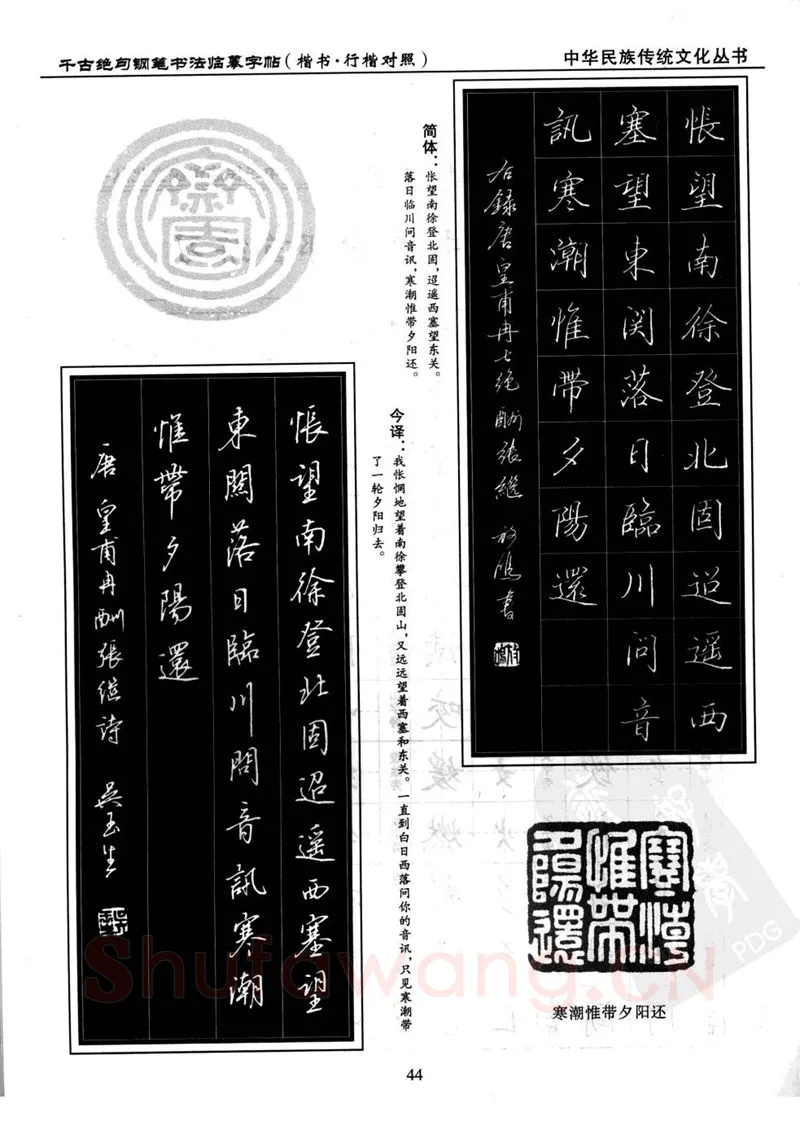 千古绝句钢笔书法临摹字帖（楷书·行楷对照）
中华民族传统文化丛书
悵望南徐登北固迢遥西
塞望東関落日臨川问音
訊寒潮惟帶夕陽還
右録唐皇甫冉七绝酬張繼 書
简体：怅望南徐登北固，迢遥西塞望东关。
落日临川问音讯，寒潮惟带夕阳还。
今译：我怅惘地望着南徐攀登北固山，又远远望着西塞和东关。一直到白日西落问你的音讯，只见寒潮带
了一轮夕阳归去。
悵望南徐登北固迢遥西塞望
東關落日臨川問音訊寒潮
惟帶夕陽還
唐皇甫冉酬張继诗 吴玉生
寒潮
惟帶
夕陽還
寒潮惟带夕阳还
44
Shufawang.CN
PDG